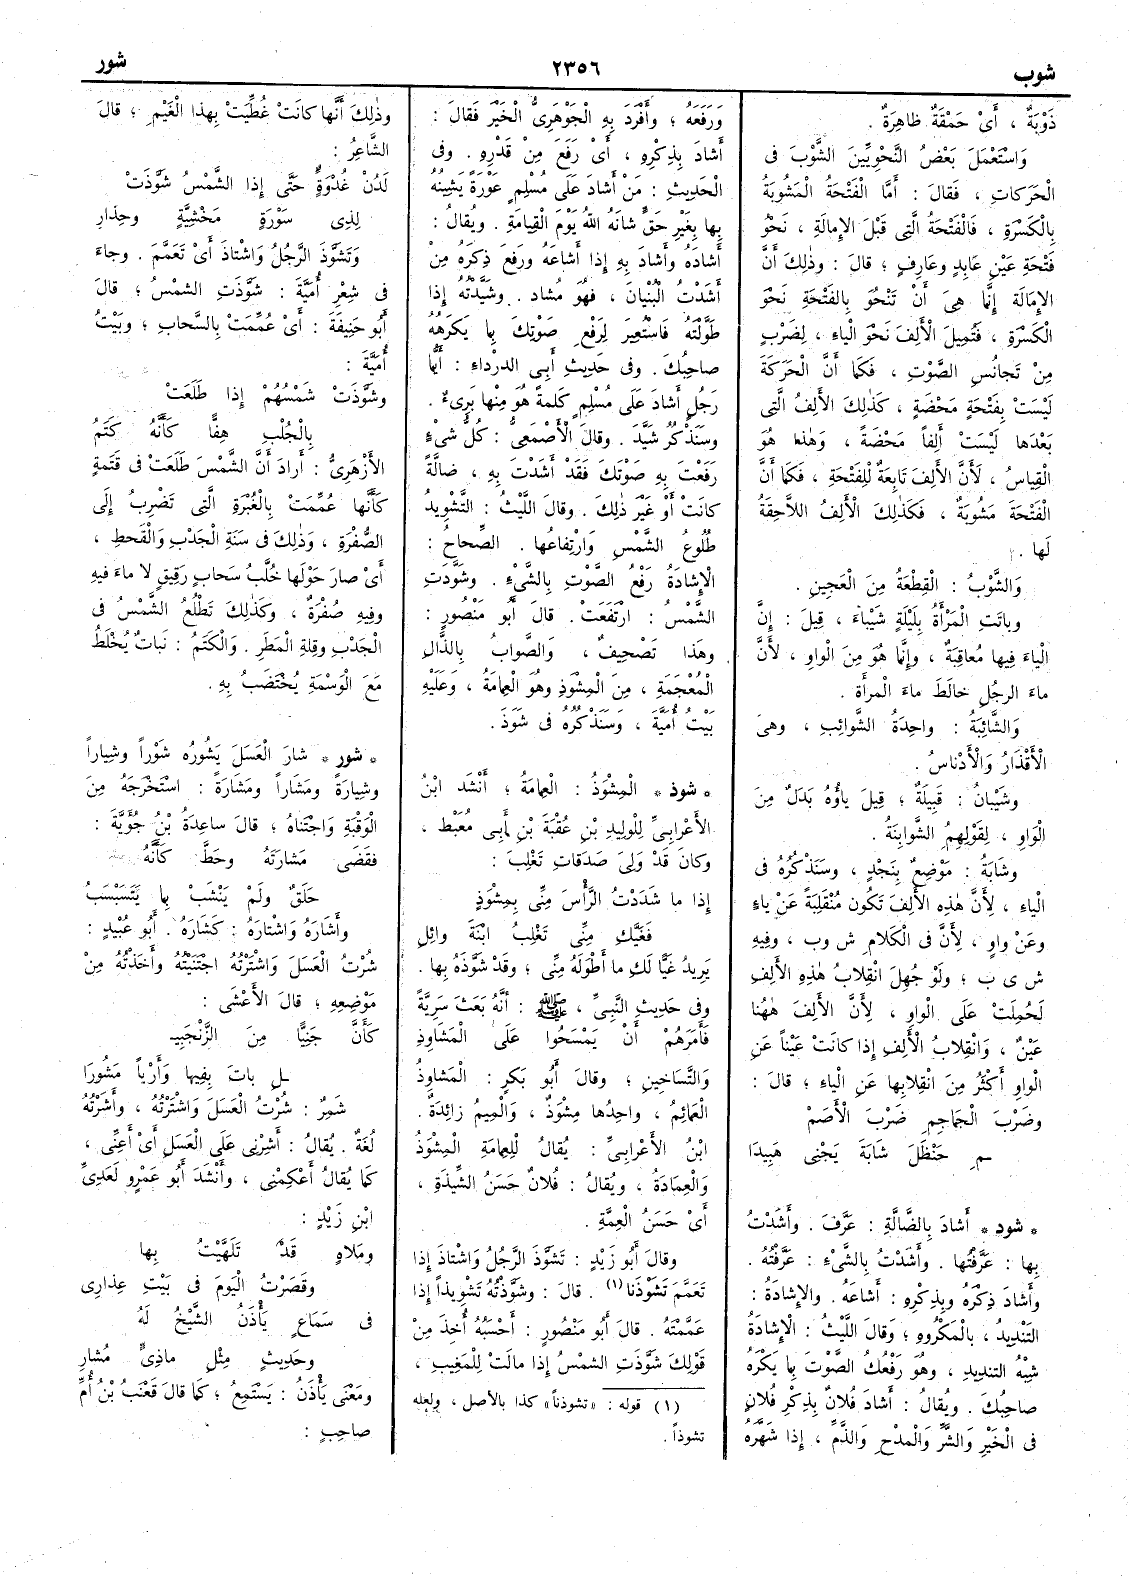 شوب
٢٣٥٦
شور
ذَوْبَةٌ ، أَىْ حَمْقَةٌ ظاهِرَةٌ .
وَاسْتَعْمَلَ بَعْضُ النَّحْوِيِّينَ الشَّوْبَ فى
الْحَرَكاتِ ، فَقالَ : أَمَّا الْفَتْحَةُ الْمَشُوبَةُ
بِالْكَسْرَةِ ، فَالْفَتْحَةُ الَّتِى قَبْلَ الإِمالَةِ ، نَحْوُ
فَتْحَةِ عَيْنِ عابِدٍ وعارِفٍ ؛ قالَ : وذٰلِكَ أَنَّ
الإِمالَةَ إِنَّما هِىَ أَنْ تَنْحُوَ بِالفَتْحَةِ نَحْوَ
الْكَسْرَةِ ، فَتُمِيلَ الْأَلِفَ نَحْوَ الْياءِ ، لِضَرْبٍ
مِنْ تَجانُسِ الصَّوْتِ ، فَكَما أَنَّ الْحَرَكَةَ
لَيْسَتْ بِفَتْحَةٍ مَحْضَةٍ ، كَذٰلِكَ الْأَلِفُ الَّتِى
بَعْدَها لَيْسَتْ أَلِفاً مَحْضَةً ، وَهٰذا هُوَ
الْقِياسُ ، لأَنَّ الأَلِفَ تابِعَةٌ لِلْفَتْحَةِ ، فَكَما أَنَّ
الْفَتْحَةَ مَشُوبَةٌ ، فَكَذٰلِكَ الْأَلِفُ اللاَّحِقَةُ
لَها .
وَالشَّوْبُ : الْقِطْعَةُ مِنَ الْعَجِينِ .
وباتَتِ الْمَرْأَةُ بِلَيْلَةِ شَيْباءَ ، قِيلَ : إِنَّ
الْياءَ فِيها مُعاقِبَةٌ ، وإِنَّما هُوَ مِنَ الْواوِ ، لأَنَّ
ماءَ الرجُلِ خالَطَ ماءَ المرأَةِ .
وَالشَّائِبَةُ : واحِدَةُ الشَّوائِبِ ، وهِىَ
الْأَقْذارُ وَالْأَدْناسُ .
وشَيْبانُ : قَبِيلَةٌ ؛ قِيلَ ياؤُهُ بَدَلٌ مِنَ
الْواوِ ، لِقَوْلِهِمُ الشَّوابِنَةُ .
وشابَةُ : مَوْضِعٌ بِنَجْدٍ ، وسَنَذْكُرُهُ فى
الْياءِ ، لِأَنَّ هٰذِهِ الأَلِفَ تَكُونُ مُنْقَلِبَةً عَنْ ياءٍ
وعَنْ واوٍ ، لِأَنَّ فى الْكَلامِ ش و ب ، وفِيهِ
ش ى ب ؛ ولَوْ جُهِلَ انْقِلابُ هٰذِهِ الأَلِفِ
لَحُمِلَتْ عَلَى الْواوِ ، لِأَنَّ الأَلِفَ هٰهُنا
عَيْنٌ ، وَانْقِلابُ الْأَلِفِ إِذا كانَتْ عَيْناً عَنِ
الْواوِ أَكْثَرُ مِنَ انْقِلابِها عَنِ الْياءِ ؛ قالَ :
وضَرْبَ الْجَماجِمِ ضَرْبَ الْأَصَمْ
ـمِ حَنْظَلَ شابَةَ يَجْنِى هَبِيدَا
« شود » أَشادَ بِالضَّالَّةِ : عَرَّفَ . وأَشَدْتُ
بِها : عَرَّفْتُها . وأَشَدْتُ بِالشَّىْءِ : عَرَّفْتُهُ .
وأَشادَ ذِكْرَهُ وبِذِكْرِهِ : أَشاعَهُ . والإِشادَةُ :
التَّنْدِيدُ ، بِالْمَكْرُوهِ ؛ وَقالَ اللَّيْثُ : الْإِشادَةُ
شِبْهُ التنديدِ ، وهُوَ رَفْعُكَ الصَّوْتَ بِما يَكْرَهُ
صاحِبُكَ . ويُقالُ : أَشادَ فُلانٌ بِذِكْرِ فُلانٍ
فى الْخَيْرِ وَالشَّرِّ وَالْمدْحِ وَالذَّمِّ ، إِذا شَهَّرَهُ
وَرَفَعَهُ ؛ وأَفْرَدَ بِهِ الْجَوْهَرِىُّ الْخَيْرَ فَقالَ :
أَشادَ بِذِكْرِهِ ، أَىْ رَفَعَ مِنْ قَدْرِهِ . وفى
الْحَدِيثِ : مَنْ أَشادَ عَلَى مُسْلِمٍ عَوْرَةً يَشِينُهُ
بِها بِغَيْرِ حَقٍّ شانَهُ اللهُ يَوْمَ الْقِيامَةِ . ويُقالُ :
أَشادَهُ وأَشادَ بِهِ إِذا أَشاعَهُ ورَفَعَ ذِكْرَهُ مِنْ
أَشَدْتُ الْبُنْيانَ ، فهُوَ مُشاد . وشَيَّدْتُهُ إِذا
طَوَّلْتَهُ فَاسْتُعِيرَ لِرَفْعِ صَوْتِكَ بِما يَكْرَهُهُ
صاحِبُكَ . وفى حَدِيثِ أَبِى الدرْداءِ : أَيُّما
رَجُلٍ أَشادَ عَلَى مُسْلِمٍ كَلِمَةً هُوَ مِنْها بَرِىءٌ .
وسَنَذْكُرُ شَيَّدَ . وقالَ الْأَصْمَعِىُّ : كُلُّ شَىْءٍ
رَفَعْتَ بِهِ صَوْتَكَ فَقَدْ أَشَدْتَ بِهِ ، ضالَّةً
كانَتْ أَوْ غَيْرَ ذٰلِكَ . وقالَ اللَّيْثُ : التَّشْوِيدُ
طُلُوعُ الشَّمْسِ وَارْتِفاعُها . الصِّحاحُ :
الْإِشادَةُ رَفْعُ الصَّوْتِ بِالشَّىْءِ . وشَوَّدَتِ
الشَّمْسُ : ارْتَفَعَتْ . قالَ أَبُو مَنْصُورٍ :
وهٰذا تَصْحِيفٌ ، وَالصَّوابُ بِالذَّالِ
الْمُعْجَمَةِ ، مِنَ الْمِشْوَذِ وهُوَ الْعِمامَةُ ، وَعَلَيْهِ
بَيْتُ أُمَيَّةَ ، وَسَنَذْكُرُهُ فى شَوَذَ .
« شوذ » الْمِشْوَذُ : الْعِمامَةُ ؛ أَنْشَدَ ابْنُ
الأَعْرابِىِّ لِلْوَلِيدِ بْنِ عُقْبَةَ بْنِ أَبِى مُعَيْط ،
وكانَ قَدْ وَلِىَ صَدَقاتِ تَغْلِبَ :
إِذا ما شَدَدْتُ الرَّأْسَ مِنِّى بِمِشْوَذٍ
فَغَيَّكِ مِنِّى تَغْلِبُ ابْنَةَ وائِلِ
يُرِيدُ غَيًّا لَكِ ما أَطْوَلَهُ مِنِّى ؛ وقَدْ شَوَّذَهُ بِها .
وفى حَدِيثِ النَّبِىِّ ، ﷺ : أَنَّهُ بَعَثَ سَرِيَّةً
فَأَمَرَهُمْ أَنْ يَمْسَحُوا عَلَى الْمَشاوِذِ
وَالتَّساخِينِ ؛ وقالَ أَبُو بَكرٍ : الْمَشاوِذُ
الْعَمائِمُ ، واحِدُها مِشْوَذٌ ، وَالْمِيمُ زائِدَةٌ .
ابْنُ الأَعْرابِىِّ : يُقالُ لِلْعِمامَةِ الْمِشْوَذُ
وَالْعِمادَةُ ، ويُقالُ : فُلانٌ حَسَنُ الشِّيذَةِ ،
أَىْ حَسَنُ الْعِمَّةِ .
وقالَ أَبُو زَيْدٍ : تَشَوَّذَ الرَّجُلُ وَاشْتاذَ إِذا
تَعَمَّمَ تَشَوْذُنا (١) . قالَ : وشَوَّذْتُهُ تَشْوِيذاً إِذا
عَمَّمْتَهُ . قالَ أَبُو مَنْصُورٍ : أَحْسَبُهُ أُخِذَ مِنْ
قَوْلِكَ شَوَّذَتِ الشمْسُ إِذا مالَتْ لِلْمَغِيبِ ،
(١) قوله : «تشوذنا» كذا بالأصل ، ولعله
تشوذاً .
وذٰلِكَ أَنَّها كانَتْ غُطِّيَتْ بِهذا الْغَيْمِ ؛ قالَ
الشَّاعِرُ :
لَدُنْ غُدْوَةٍ حَتَّى إِذا الشَّمْسُ شَوَّذَتْ
لِذِى سَوْرَةٍ مَخْشِيَّةٍ وحِذارِ
وَتَشَوَّذَ الرَّجُلُ وَاشْتاذَ أَىْ تَعَمَّمَ . وجاءَ
فى شِعْرِ أُمَيَّةَ : شَوَّذَتِ الشمْسُ ؛ قالَ
أَبُو حَنِيفَةَ : أَىْ عُمِّمَتْ بِالسَّحابِ ؛ وبَيْتُ
أُمَيَّةَ :
وشَوَّذَتْ شَمْسُهُمْ إِذا طَلَعَتْ
بِالْجُلْبِ هِفًّا كَأَنَّهُ كَتَمُ
الأَزْهَرِىُّ : أَرادَ أَنَّ الشَّمْسَ طَلَعَتْ فى قَتَمَةٍ
كَأَنَّها عُمِّمَتْ بِالْغُبْرَةِ الَّتِى تَضْرِبُ إِلَى
الصُّفْرَةِ ، وَذٰلِكَ فى سَنَةِ الْجَدْبِ وَالْقَحطِ ،
أَىْ صارَ حَوْلَها خُلَّبُ سَحابٍ رَقِيقٍ لا ماءَ فيهِ
وفِيهِ صُفْرَةٌ ، وكَذٰلِكَ تَطْلُعُ الشَّمْسُ فى
الْجَدْبِ وقِلةِ الْمَطَرِ . وَالْكَتَمُ : نَباتٌ يُخْلَطُ
مَعَ الْوَسْمَةِ يُخْتَضَبُ بِهِ .
« شور » شارَ الْعَسَلَ يَشُورُه شَوْراً وشِياراً
وشِيارَةً ومَشَاراً ومَشارَةً : اسْتَخْرَجَهُ مِنَ
الْوَقْبَةِ وَاجْتَناهُ ؛ قالَ ساعِدَةُ بْنُ جُؤَيَّةَ :
فقَضَى مَشارَتَهُ وحَطَّ كَأَنَّهُ
حَلَقٌ ولَمْ يَنْشَبْ بِما يَتَسَبْسَبُ
وأَشارَهُ وَاشْتارَهُ : كَشارَهُ . أَبُو عُبَيْدٍ :
شُرْتُ الْعَسَلَ وَاشْتَرْتُهُ اجْتَنَيْتُهُ وأَخَذْتُهُ مِنْ
مَوْضِعِهِ ؛ قالَ الأَعْشَى :
كَأَنَّ جَنِيًّا مِنَ الزَّنْجَبِيـ
ـلِ باتَ بِفِيها وَأَرْياً مَشُورَا
شَمِرٌ : شُرْتُ الْعَسَلَ وَاشْتَرْتُهُ ، وأَشَرْتُهُ
لُغَةٌ . يُقالُ : أَشِرْنِى عَلَى الْعَسَلِ أَىْ أَعِنِّى ،
كَما يُقالُ أَعْكِمْنِى ، وأَنْشَدَ أَبُو عَمْرٍو لَعَدِىِّ
ابْنِ زَيْدٍ :
ومَلاهٍ قَدْ تَلَهَّيْتُ بِها
وقَصَرْتُ الْيَوْمَ فى بَيْتِ عِذارِى
فى سَماعٍ يَأْذَنُ الشَّيْخُ لَهُ
وحَدِيثٍ مِثْلِ ماذِىٍّ مُشارِ
ومَعْنَى يَأْذَنُ : يَسْتَمِعُ ؛ كَما قالَ قَعْنَبُ بْنُ أُمِّ
صاحِبٍ :